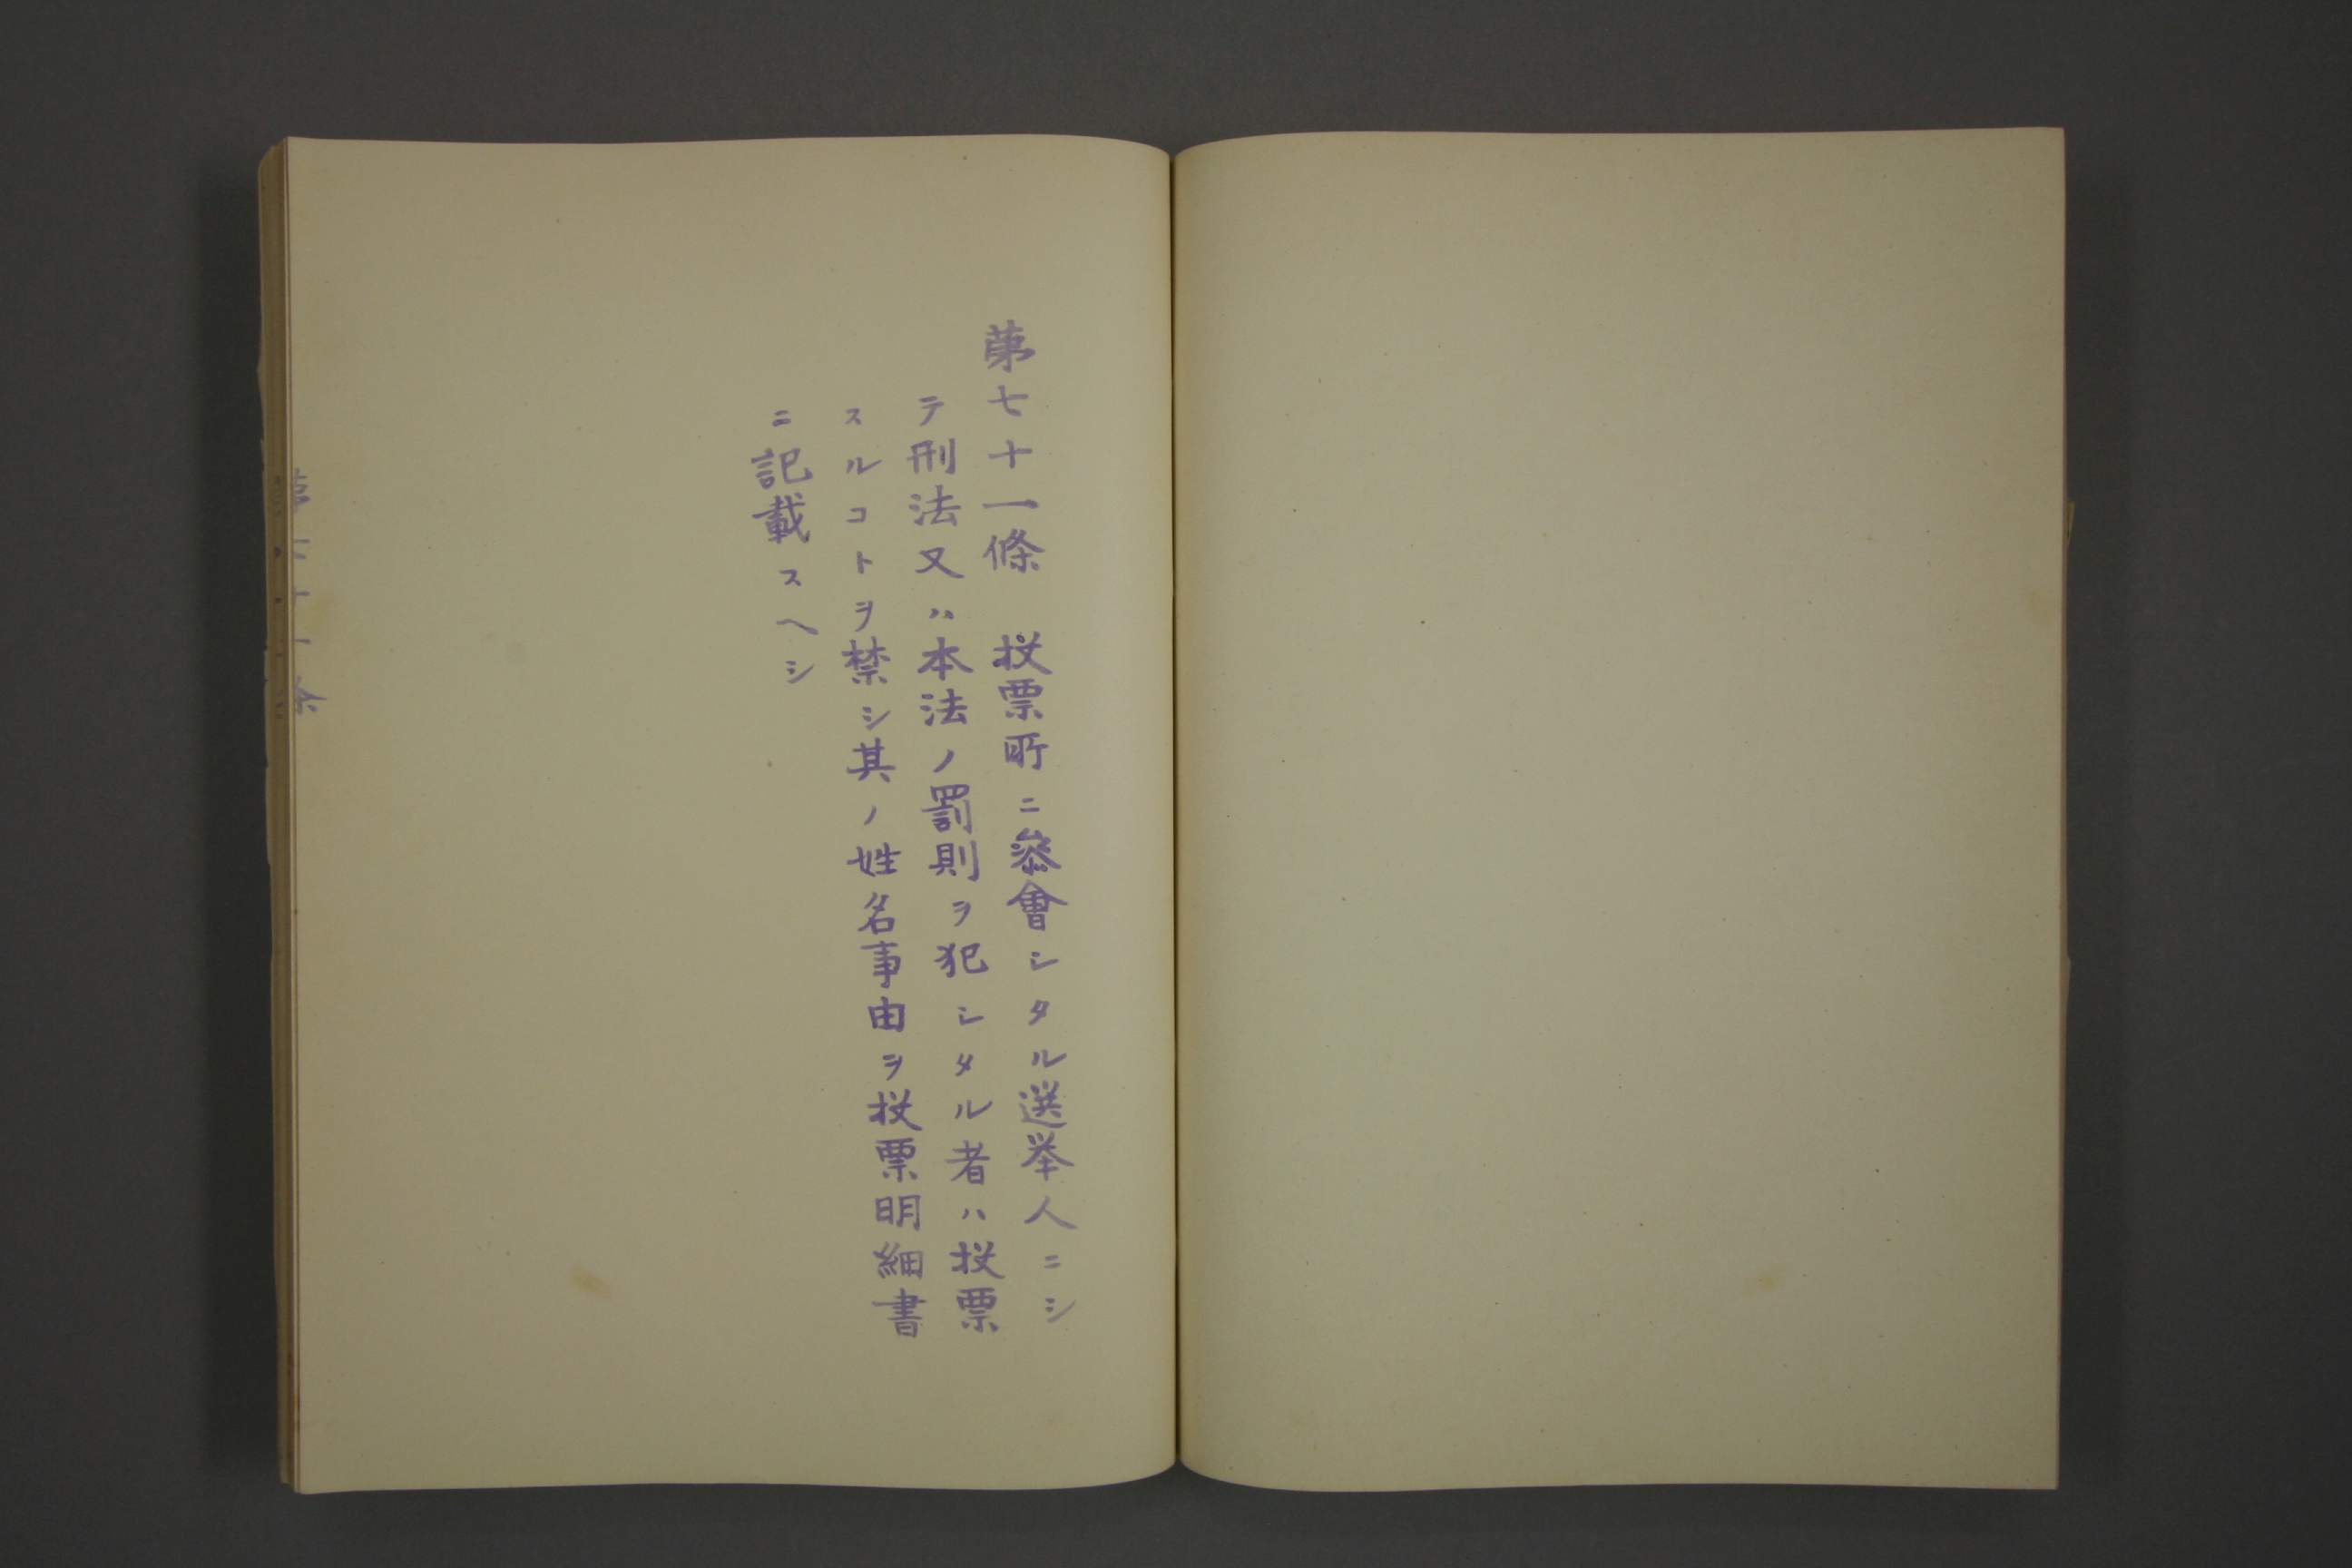 第七十一條　投票所ニ參會シタル選挙人ニシ
テ刑法又ハ本法ノ罰則ヲ犯シタル者ハ投票
スルコトヲ禁シ其ノ姓名事由ヲ投票明細書
ニ記載スヘシ